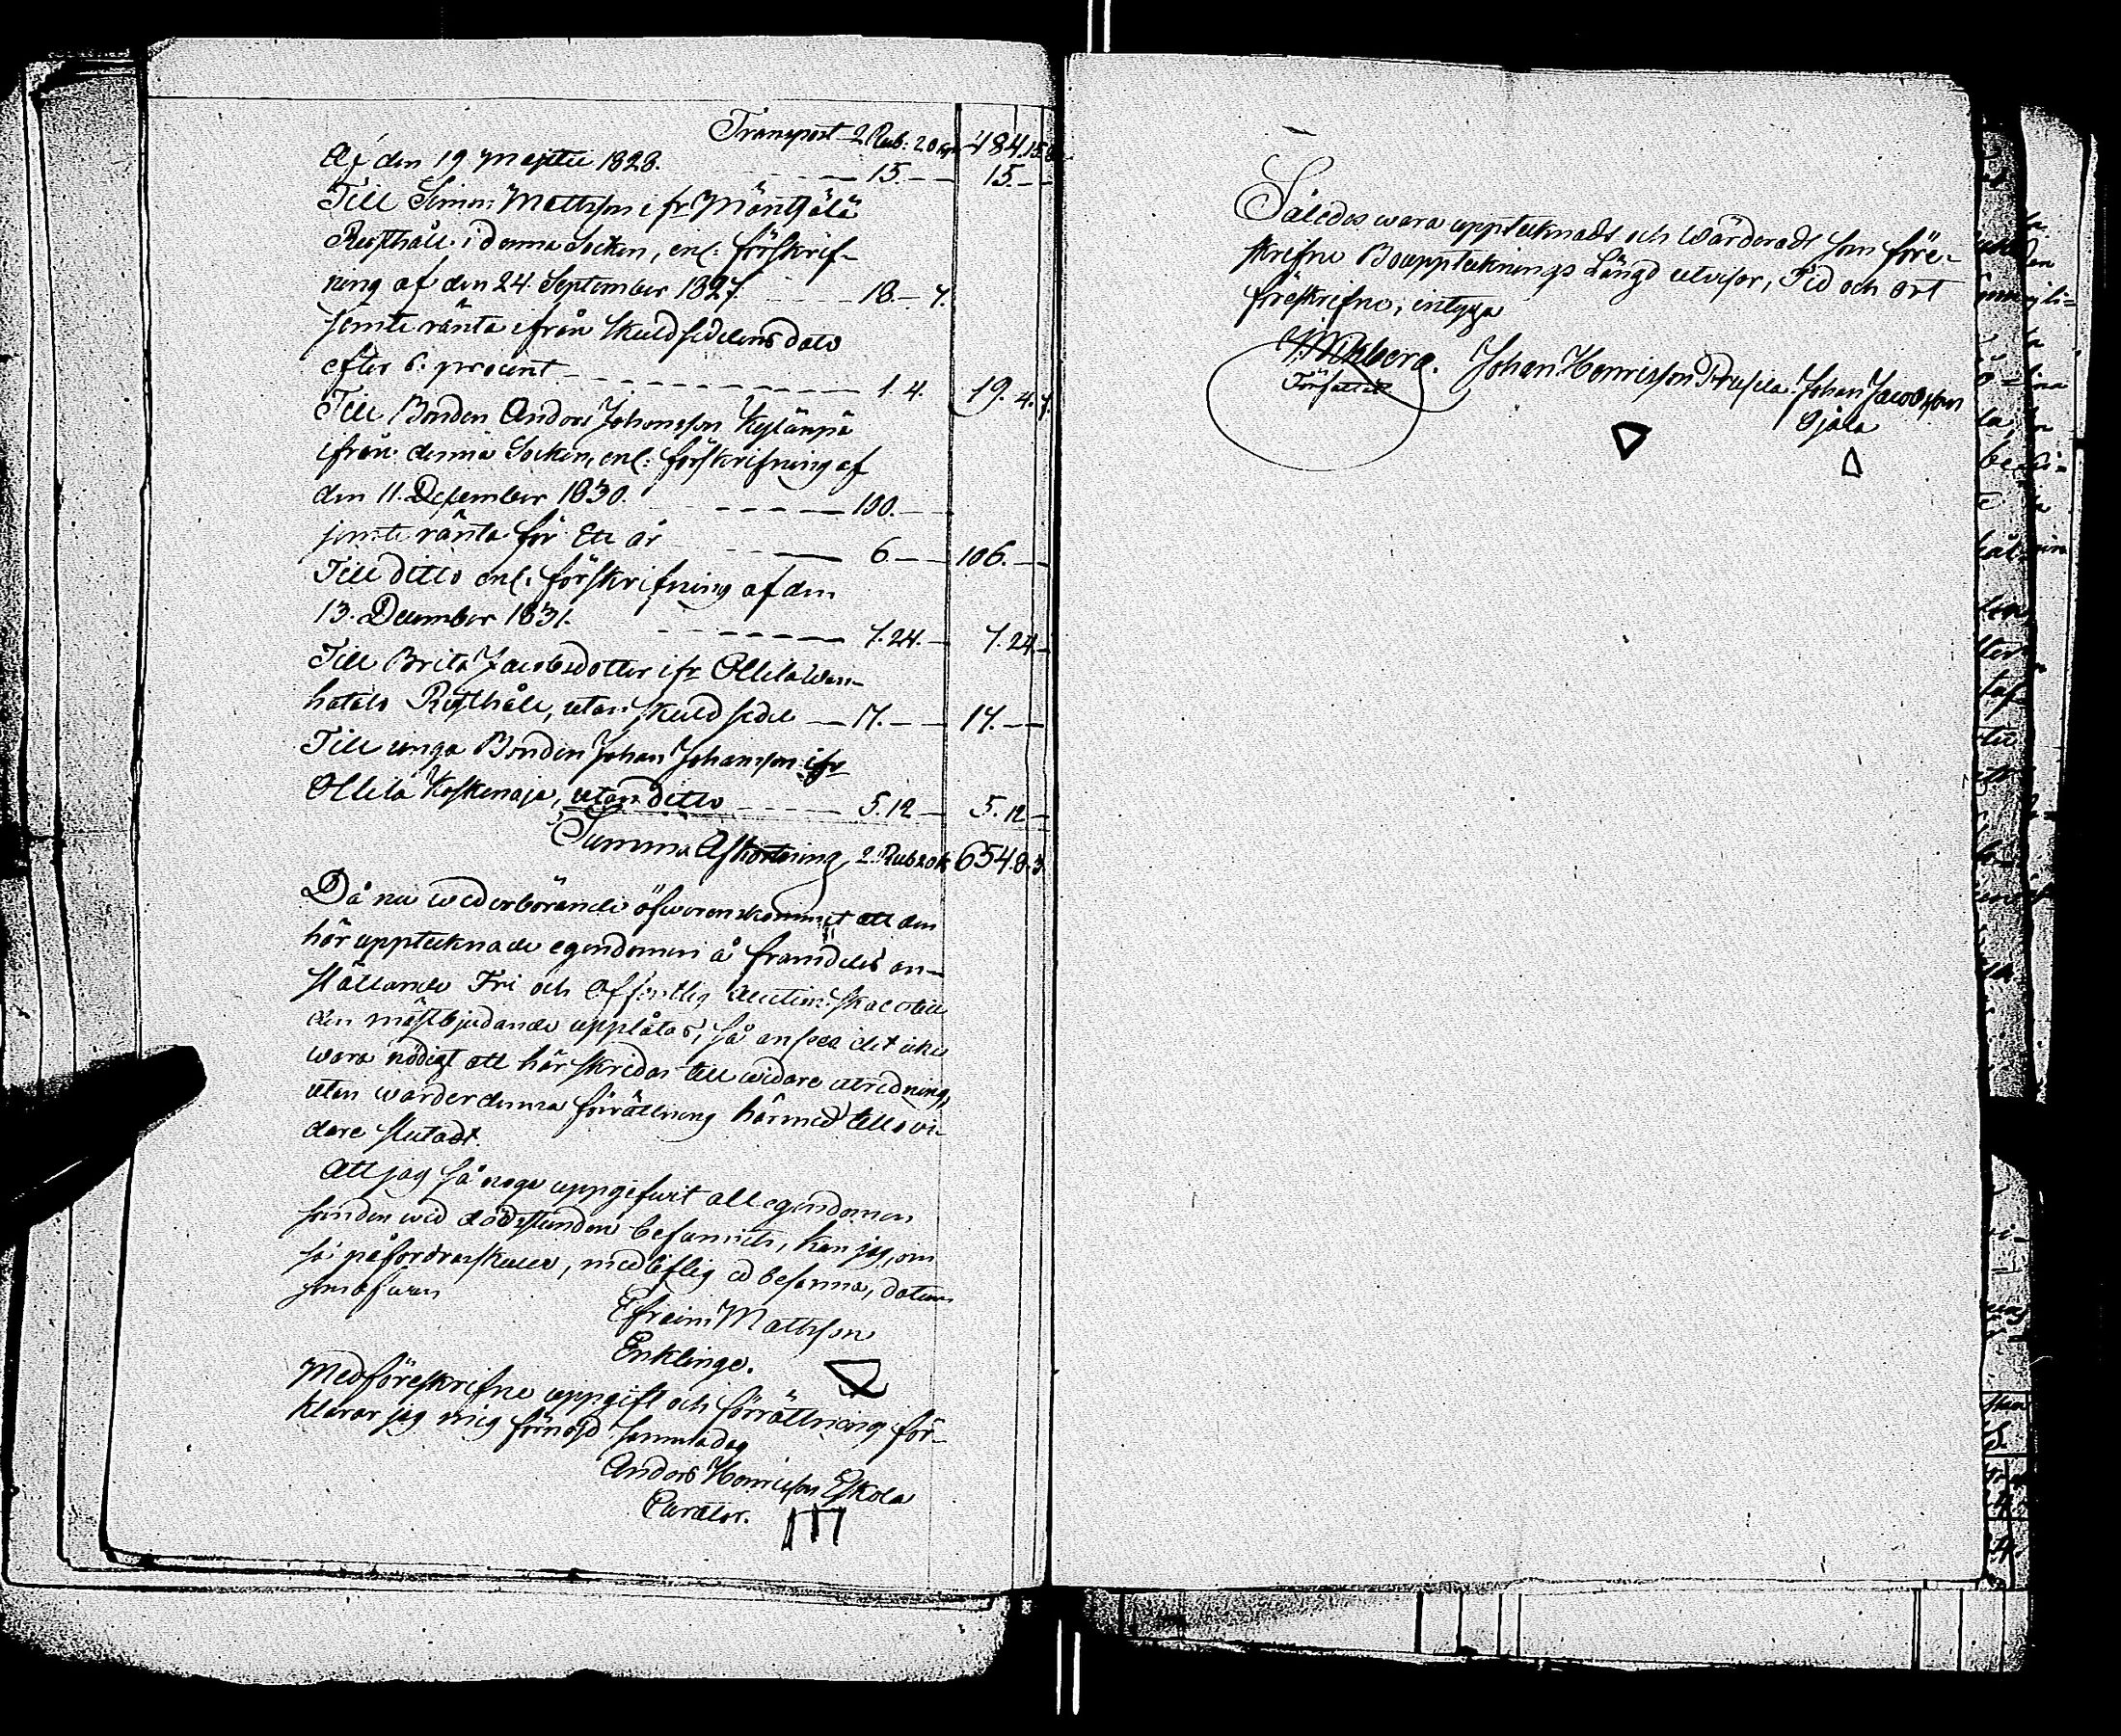 Transport 2 Rub: 20 kop 484.15.8
Af den 19 Martii 1828. 15.— 15.—
Till Simon Mattsson ifr Mänttälä
Rusthåll i denna Socken, enl: förskrif-
ning af den 24. September 1827. 18.— 7.
jemte ränta ifrån skuldsedelens dato
efter 6. procent 1. 4. 19. 4. 7.
Till Bonden Anders Johansson Kylänpä
ifrån denna Socken, enl: förskrifning af
den 11. December 1830. 100.—
jemte ränta för Ett år 6.— 106.—
Till ditto enl: förskrifning af den
13. December 1831. 7.24.— 7.24.—
Till Brita Jacobsdotter ifr Ollila Wan-
hatalo Rusthåll, utan skuldsedel 17.— 17.—
Till unga Bonden Johan Johansson ifr
Ollila Koskenoja, utan ditto 5.12 — 5.12 —
Summa Afkortning 2. Rub 20 k 654.8.3.
Då nu wederbörande öfwerenskommit att den
här upptecknade egendomen å framdeles an-
ställande Fri och Offentlig Auction skall till
den mästbjudande upplåtas, så anses det icke
wara nödigt att här skridas till widare utredning,
utan warder denna förrättning härmed tills wi-
dare slutadt.
Att jag så noga uppgifwit all egendomen
sanden wid dödsstunden befunnits, kan jag, om
så påfordras skulle, med liflig ed besanna, datum
som ofwan
Efraim Mattsson
Enklinge.
Med föreskrifne uppgift och förrättning för-
klarar jag mig förnöjd samma dag
Anders Henricsson Eskola
Curator.
Således wara upptecknadt och Wärderadt som före-
skrifne Bouppteknings Längd utwisar, Tid och ort
föreskrifne, intyga
Wikberg. Johan Henricsson Prusila. Johan Jacobsson
Författare Ojala